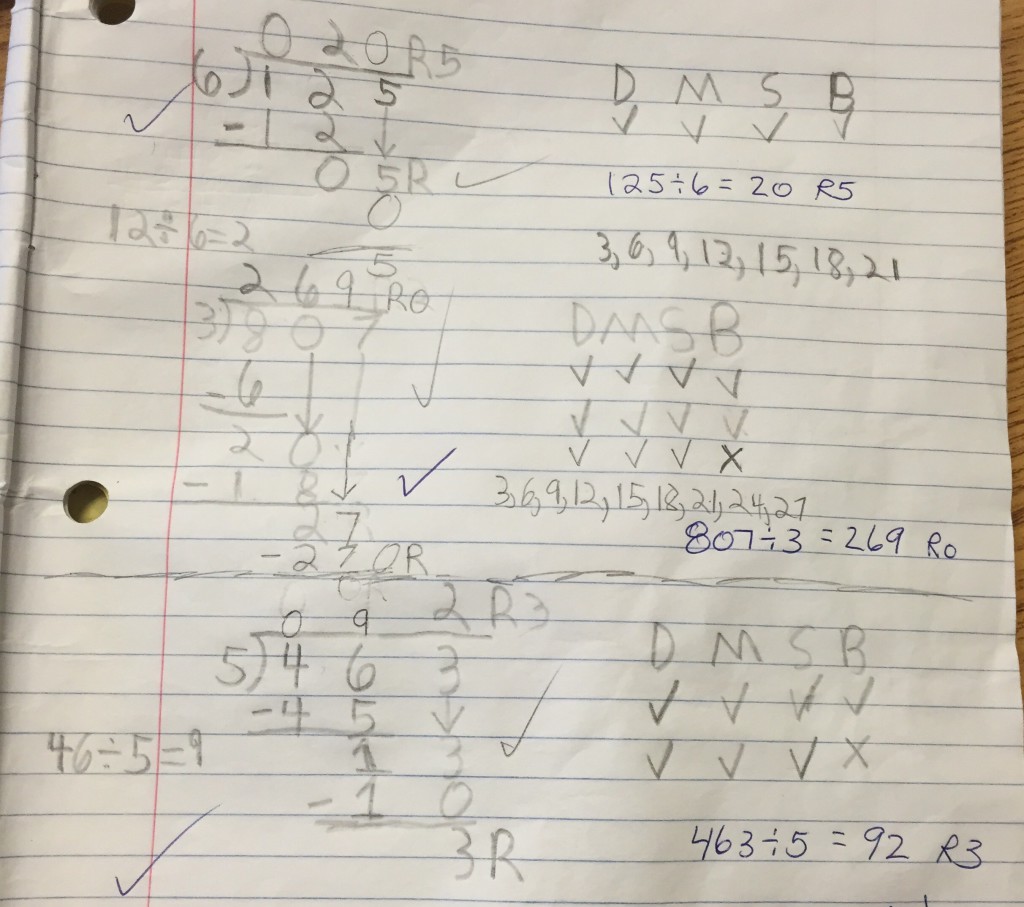 0 2 0 R5
6)1 2 5
-1 2
0 5R
0
5
12÷6=2
D M S B
✓ ✓ ✓ ✓
125÷6=20 R5
3,6,9,12,15,18,21
2 6 9 R0
3)8 0 7
-6
2 0
-1 8
2 7
-2 7 0R
D M S B
✓ ✓ ✓ ✓
✓ ✓ ✓ ✓
✓ ✓ ✓ X
3,6,9,12,15,18,21,24,27
807÷3=269 R0
0 9 2 R3
5)4 6 3
-4 5
1 3
-1 0
3R
46÷5=9
D M S B
✓ ✓ ✓ ✓
✓ ✓ ✓ X
463÷5=92 R3